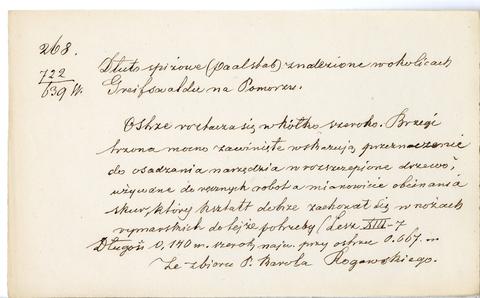 268.
722
639 W.
Dłuto spiżowe (paalstab) znalezione w okolicach
Greifswaldu na Pomorzu.
Ostrze roztacza się w kółko szeroko. Brzegi
trzona mocno zawinięte wskazują przeznaczenie
do osadzania narzędzia w rozszczepione drzewo,
używane do ręcznych robot a mianowicie obcinania
skur, który kształt dobrze zachował się w nożach
rymarskich do tejże potrzeby (Lesz XIII-7
Długość 0,140 m. szerok. najw. przy ostrzu 0.067. m
Ze zbioru P. Karola Rogawskiego.